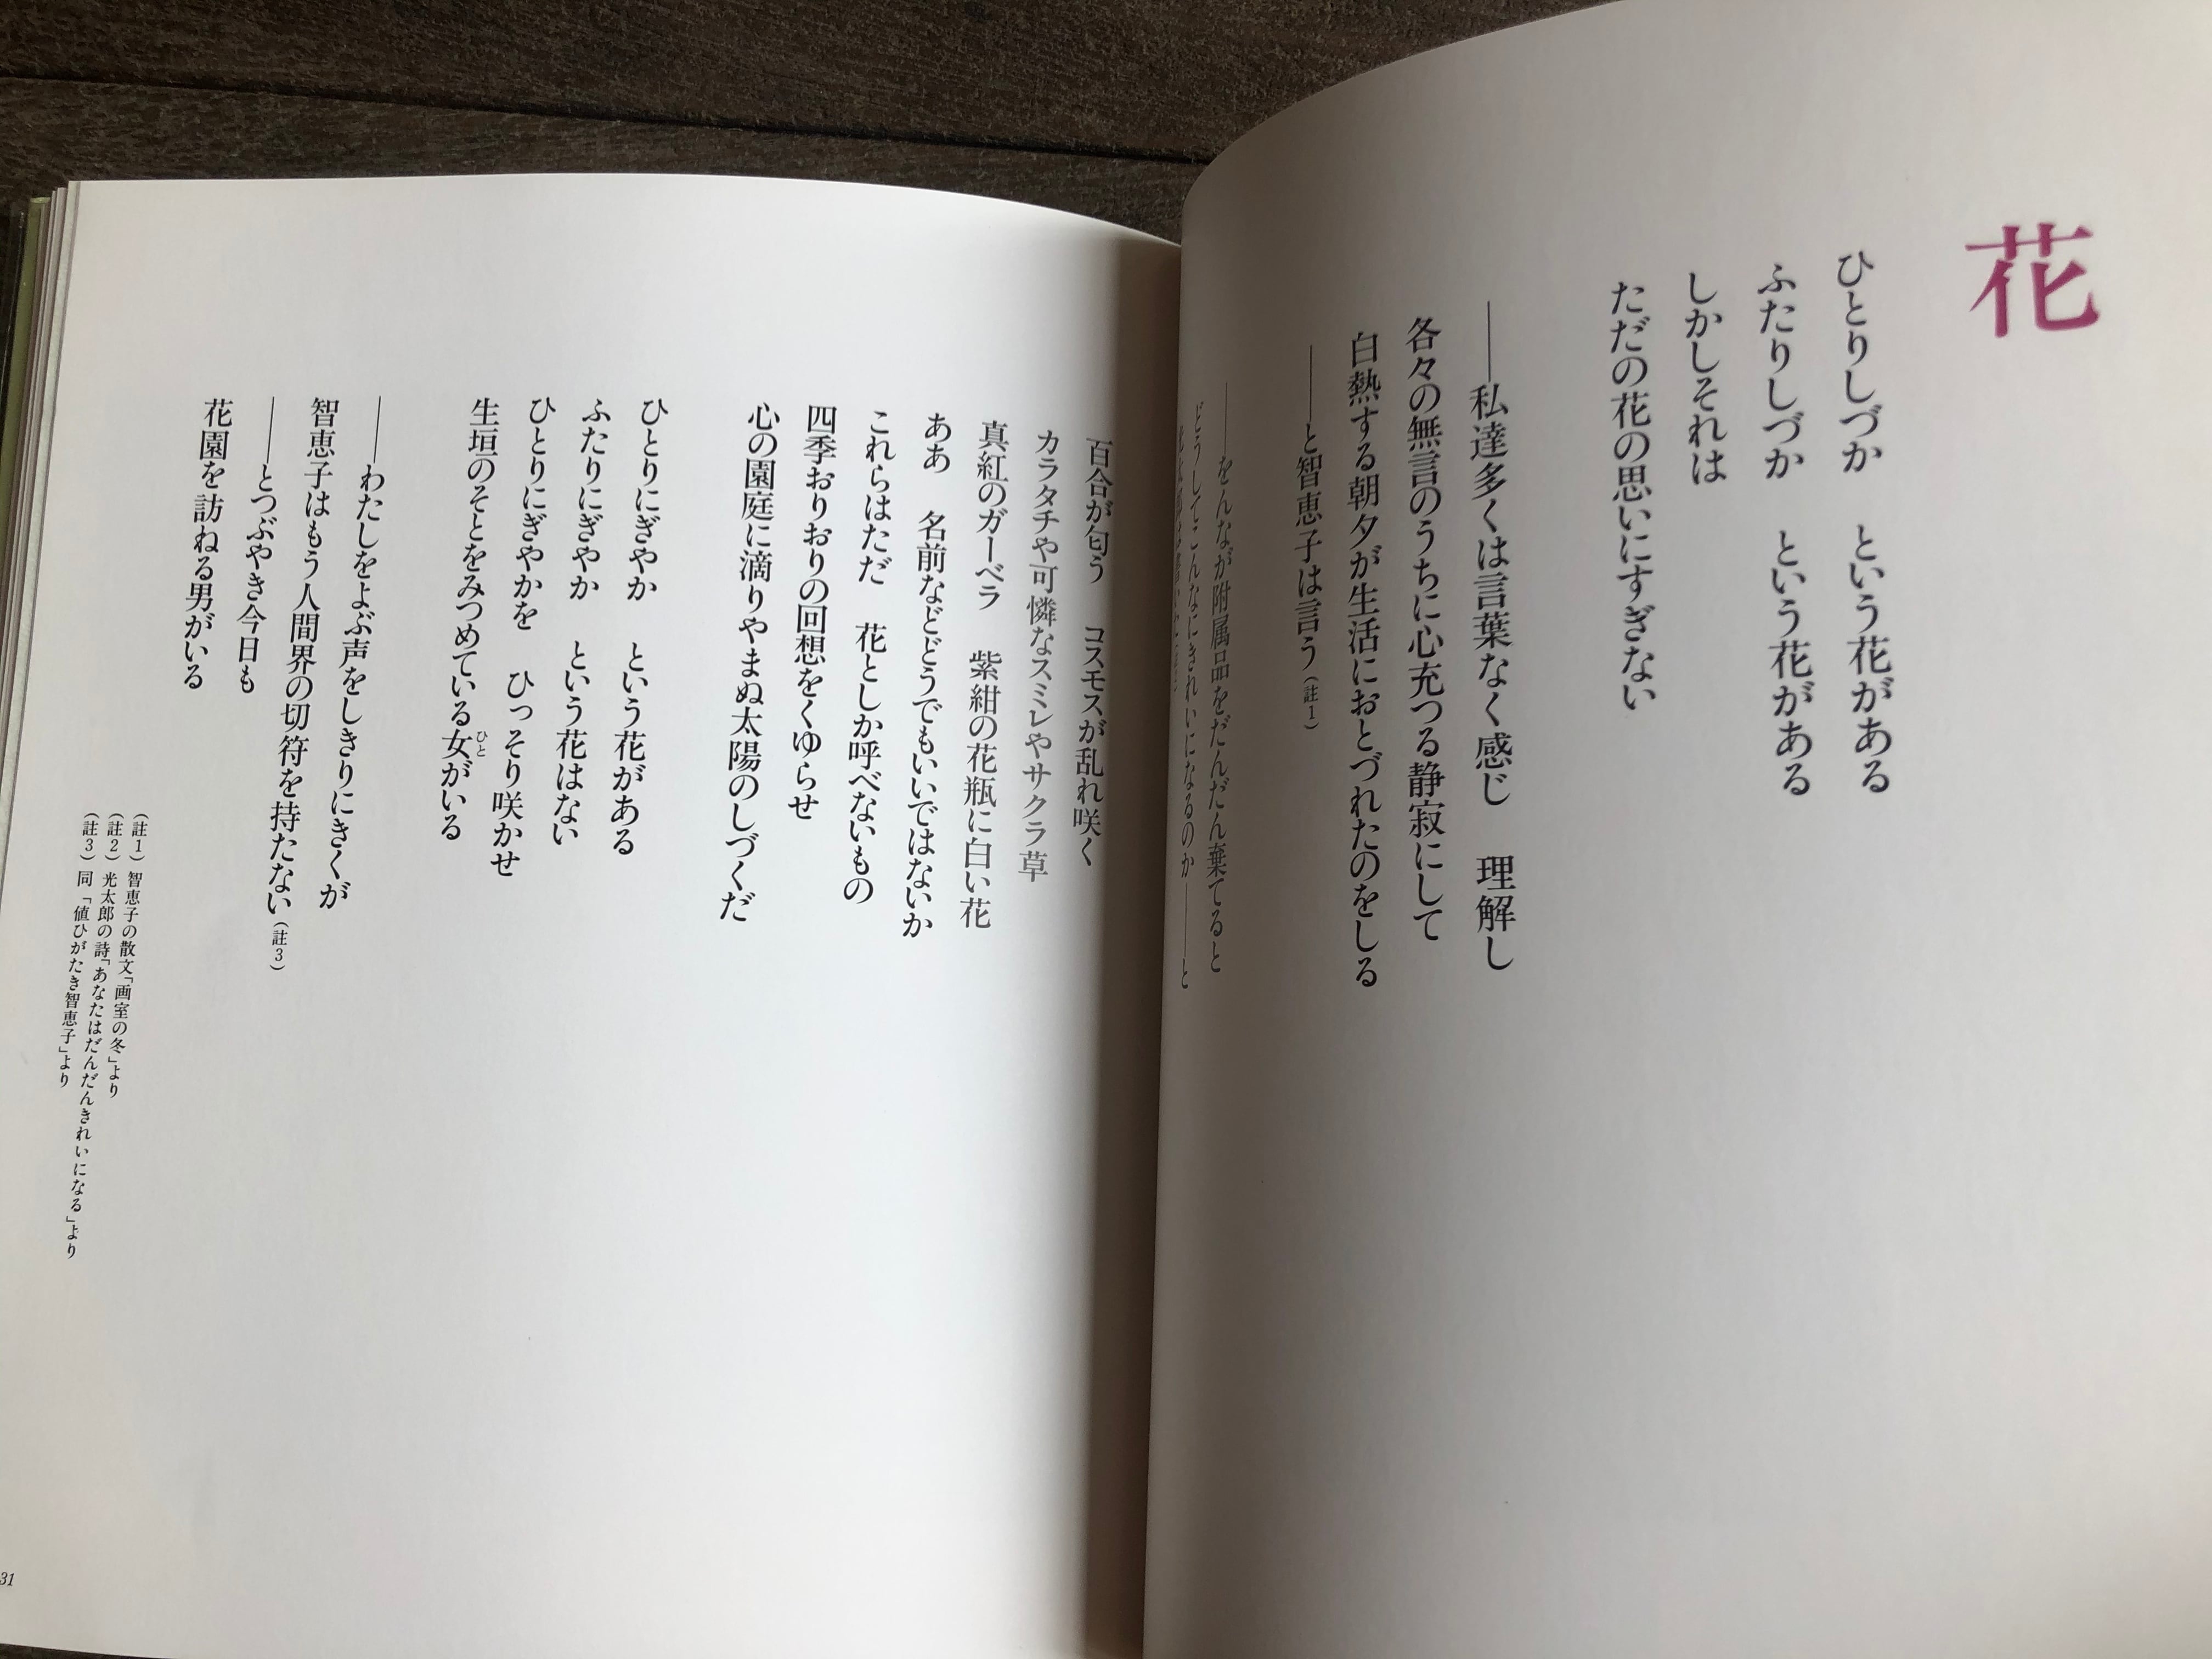 花
ひとりしづか　という花がある
ふたりしづか　という花がある
しかしそれは
ただの花の思いにすぎない
――私達多くは言葉なく感じ　理解し
各々の無言のうちに心充つる静寂にして
白熱する朝夕が生活におとづれたのをしる
――と智恵子は言う（註1）
――をんなが附属品をだんだん棄てると
どうしてこんなにきれいになるのか――と
百合が匂う　コスモスが乱れ咲く
カラタチや可憐なスミレやサクラ草
真紅のガーベラ　紫紺の花瓶に白い花
ああ　名前などどうでもいいではないか
これらはただ　花としか呼べないもの
四季おりおりの回想をくゆらせ
心の園庭に滴りやまぬ太陽のしづくだ
ひとりにぎやか　という花がある
ふたりにぎやか　という花はない
ひとりにぎやかを　ひっそり咲かせ
生垣のそとをみつめている女がいる
ひと
――わたしをよぶ声をしきりにきくが
智恵子はもう人間界の切符を持たない（註3）
――とつぶやき今日も
花園を訪ねる男がいる
（註1）智恵子の散文「画室の冬」より
（註2）光太郎の詩「あなたはだんだんきれいになる」より
（註3）同「値ひがたき智恵子」より
31